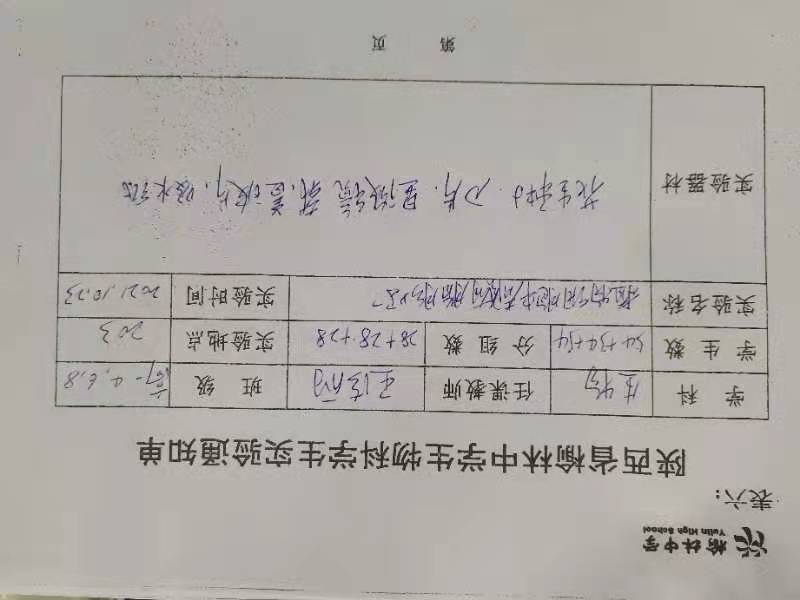 榆林中学
Yulin High School
表六:
陕西省榆林中学生物科学生实验通知单
学 科 生物 任课教师 班 级 高一4,6,8
学 生 数 54+54+54 分 组 数 28+28+28 实验地点 203
实验名称 实验时间 2021.10.23
实验器材 花生种子、刀片、显微镜 盖玻片,吸水纸
第 页